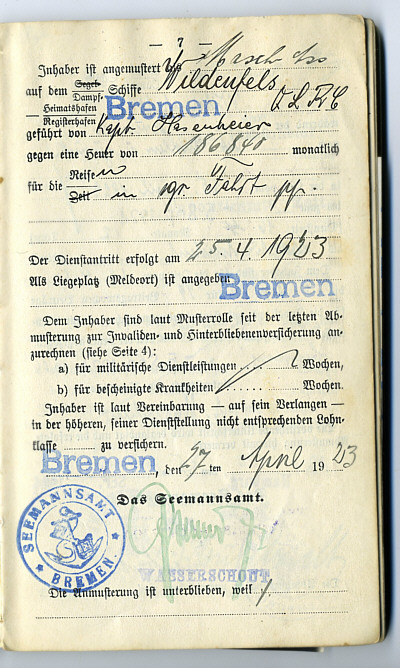 — 7 —
Inhaber ist angemustert als Masch. Ass
auf dem Segel- Dampf- Schiffe Wildenfels
Heimatshafen Registerhafen Bremen Q L R C
geführt von Kapt. Hasenheier
gegen eine Heuer von 186840 monatlich
für die Reise n Zeit in gr. Fahrt pp.
Der Dienstantritt erfolgt am 25. 4. 1923
Als Liegeplatz (Meldeort) ist angegeben Bremen
Dem Inhaber sind laut Musterrolle seit der letzten Ab-
musterung zur Invaliden- und Hinterbliebenenversicherung an-
zurechnen (siehe Seite 4):
a) für militärische Dienstleistungen Wochen,
b) für bescheinigte Krankheiten Wochen.
Inhaber ist laut Vereinbarung — auf sein Verlangen —
in der höheren, seiner Dienststellung nicht entsprechenden Lohn-
klasse zu versichern.
Bremen, den 27 ten April 1923
Das Seemannsamt.
SEEMANNSAMT
BREMEN.
WASSERSCHOUT
Die Anmusterung ist unterblieben, weil